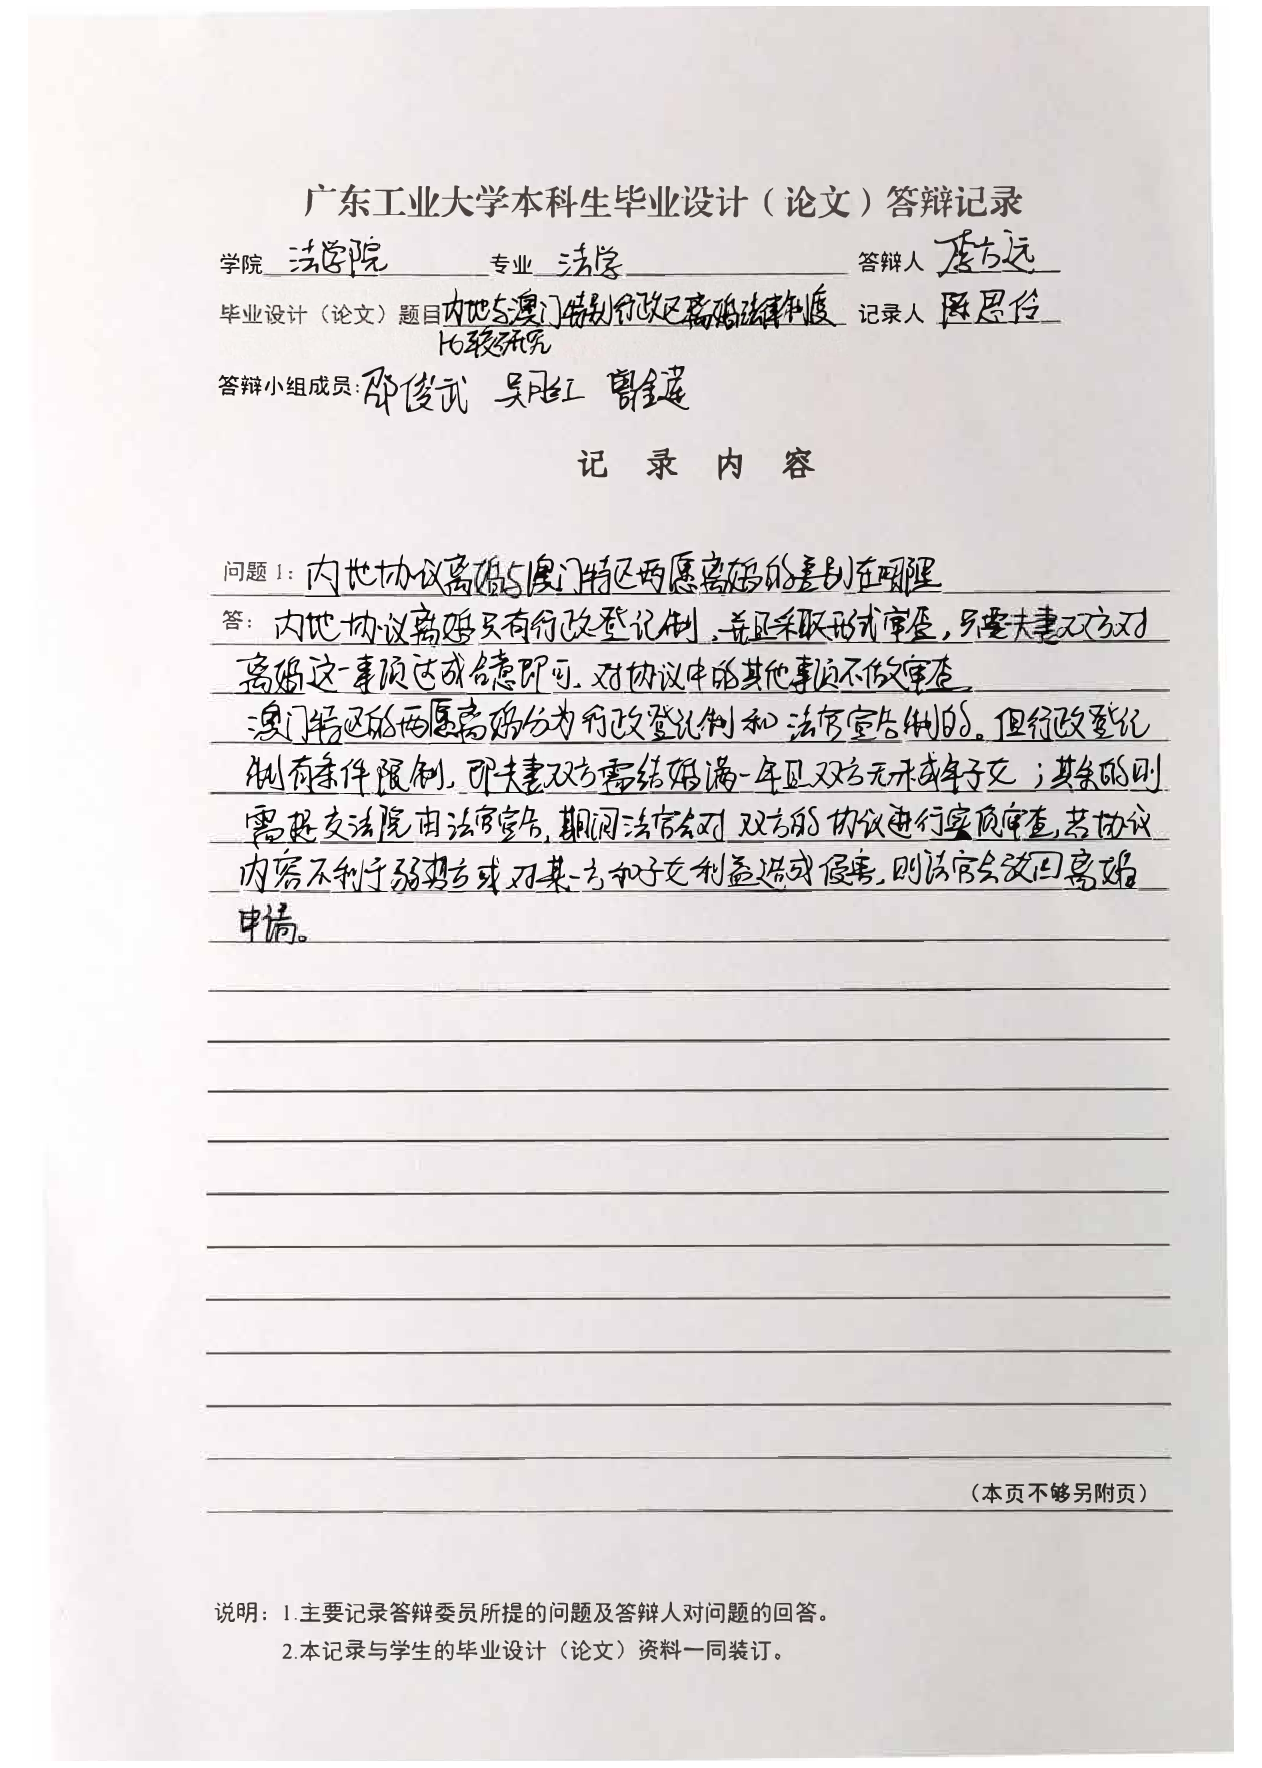 广东工业大学本科生毕业设计（论文）答辩记录
学院 法学院 专业 法学 答辩人 李方远
毕业设计（论文）题目 内地与澳门特别行政区离婚法律制度 记录人 陈思伶
比较研究
答辩小组成员：邵俊武 吴月红 曾金莲
记 录 内 容
问题1：内地协议离婚与澳门特区两愿离婚的差别在哪里
答：内地协议离婚只有行政登记制，并且采取形式审查，只要夫妻双方对
离婚这一事项达成合意即可，对协议中的其他事项不做审查。
澳门特区的两愿离婚分为行政登记制和法官宣告制的。但行政登记
制有条件限制，即夫妻双方需结婚满一年且双方无未成年子女；其余的则
需起交法院由法官宣告，期间法官会对双方的协议进行实质审查，若协议
内容不利于弱势方或对某一方和子女利益造成侵害，则法官会驳回离婚
申请。
（本页不够另附页）
说明：1.主要记录答辩委员所提的问题及答辩人对问题的回答。
2.本记录与学生的毕业设计（论文）资料一同装订。